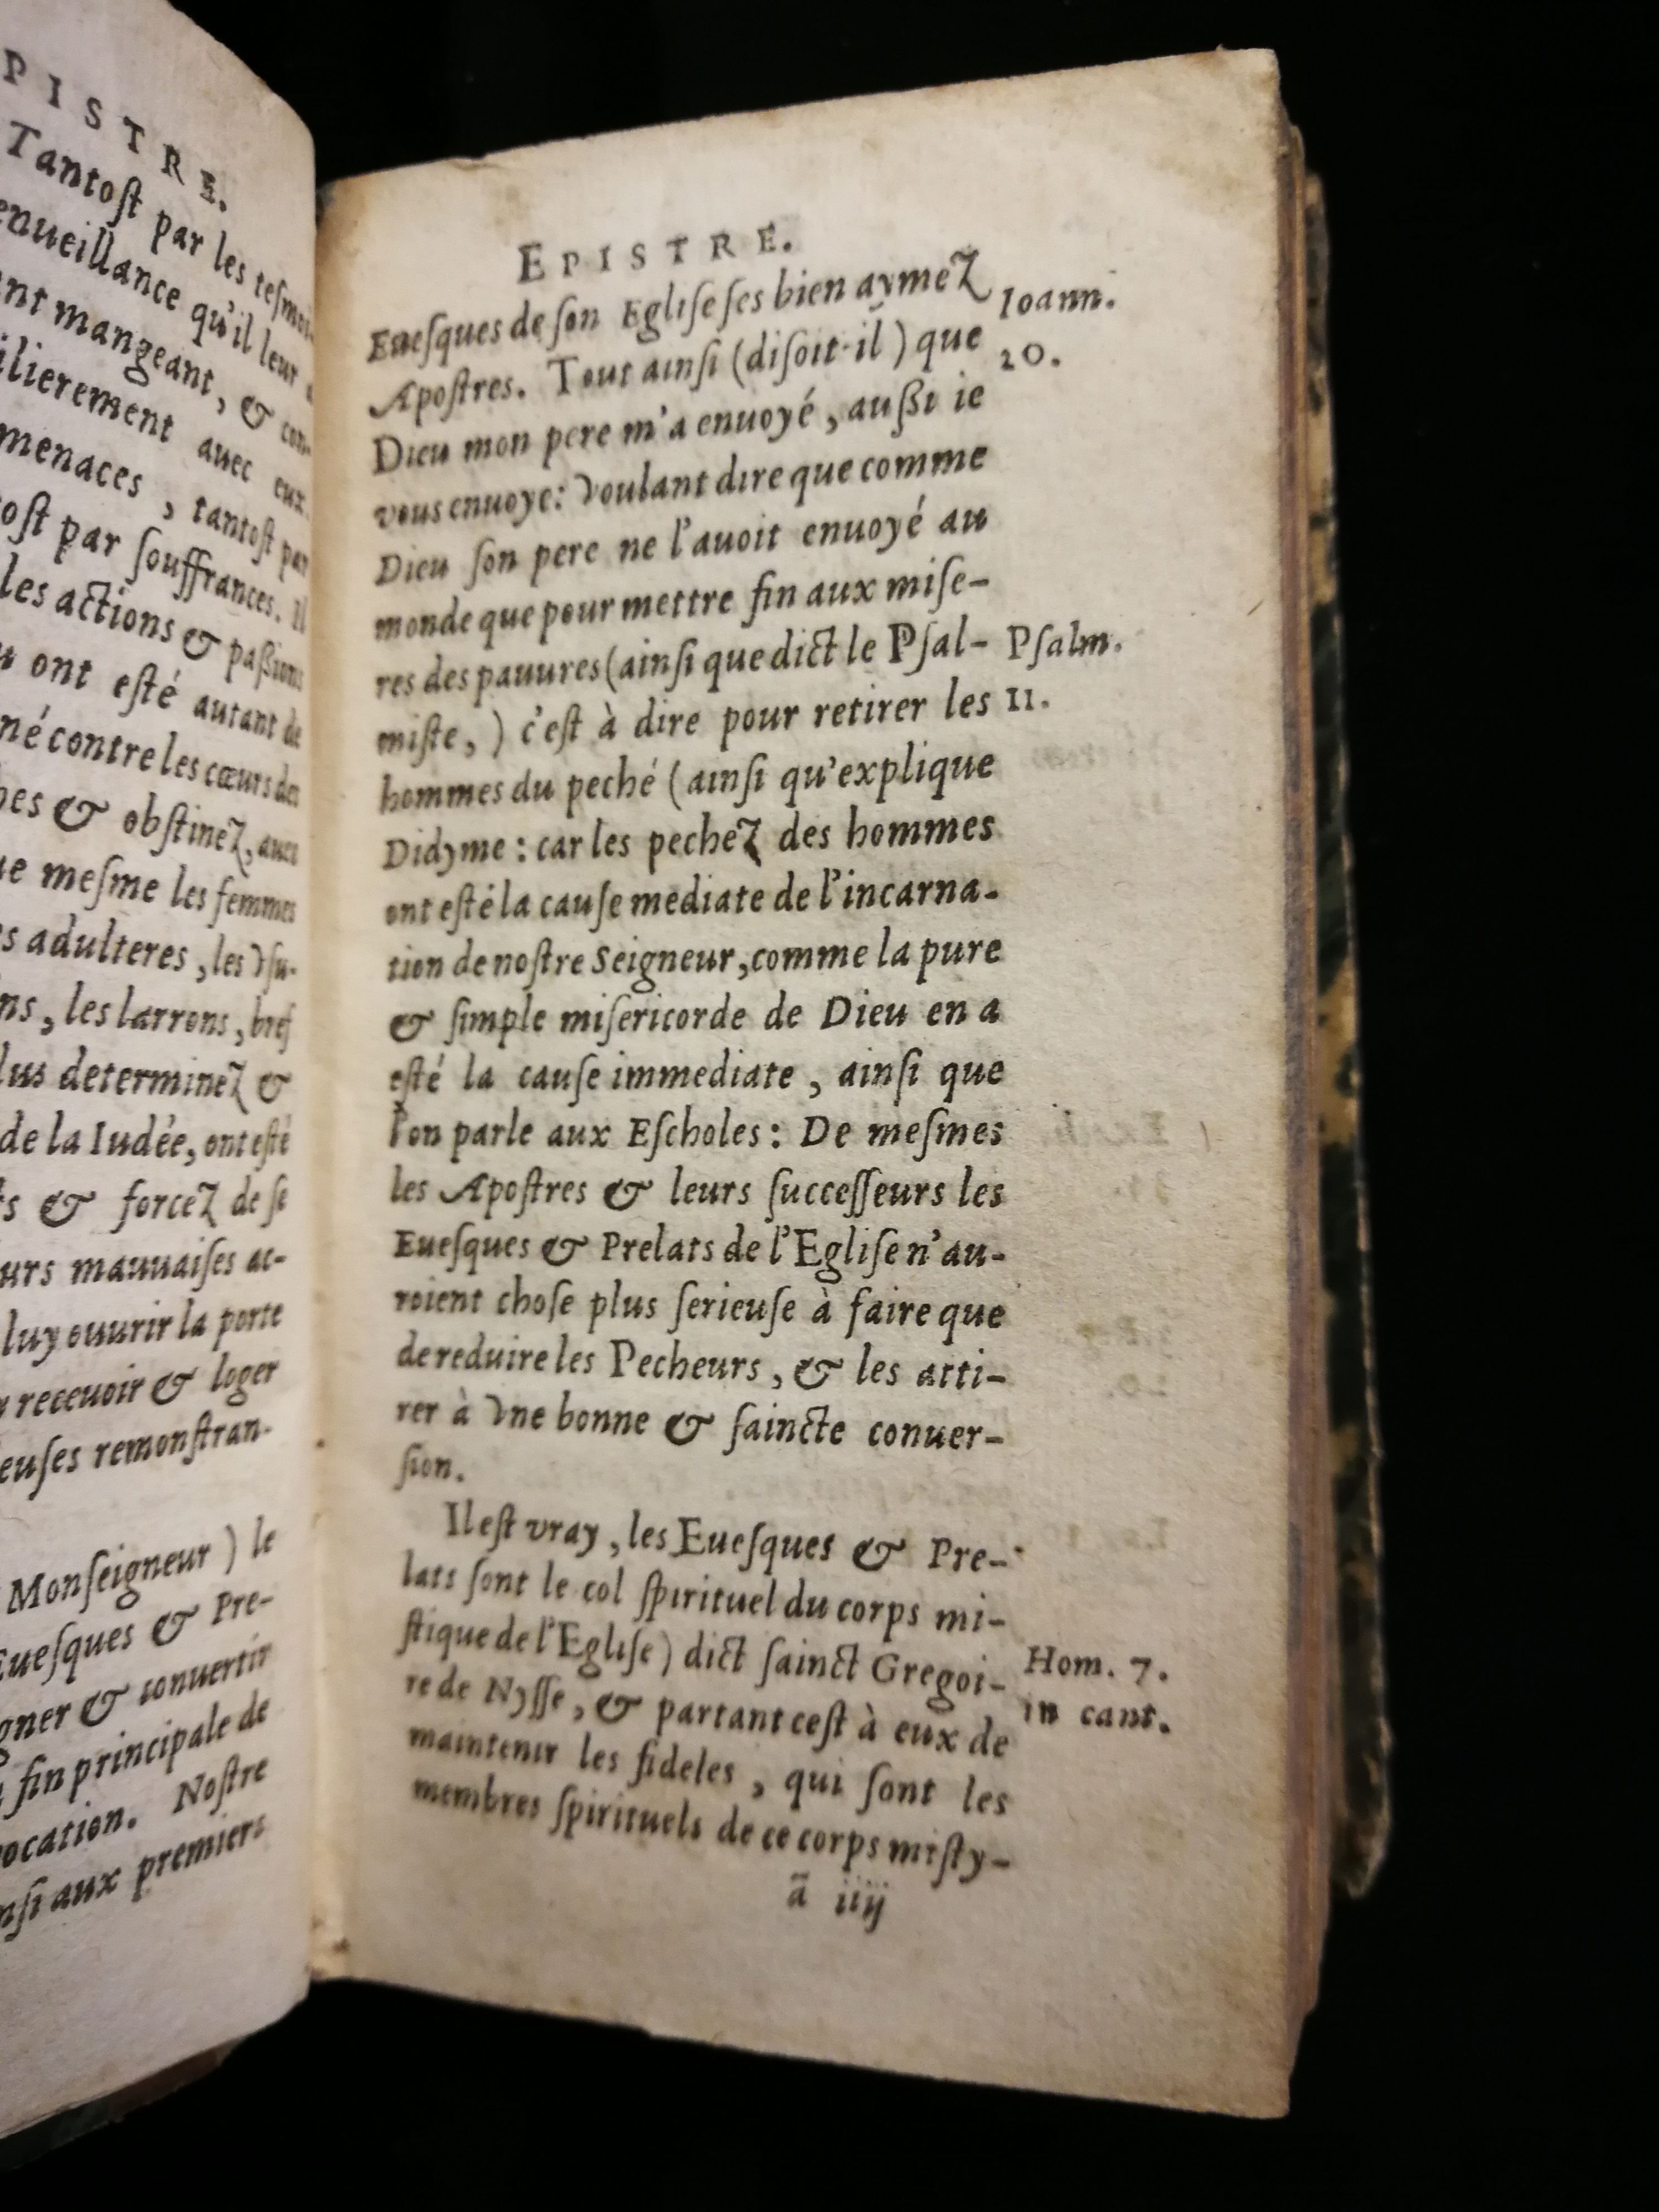 PISTRE.
Tantoſt par les teſmoi-
enueillance qu'il leur
ant mangeant, & con-
ilierement auec eux.
menaces, tantoſt par
oſt par ſouffrances. Il
les actions & paßions
ont eſté autant de
né contre les cœurs des
hes & obſtinez, auec
ue meſme les femmes
s adulteres, les vſu-
ns, les larrons, bref
lus determinez &
de la Iudée, ont eſté
& forcez de ſe
urs mauuaiſes ac-
luy ouurir la porte
recevoir & loger
euſes remonſtran-
Monſeigneur) le
Eueſques & Pre-
gner & conuertir
fin principale de
ocation. Noſtre
nſi aux premiers
EPISTRE.
Eueſques de ſon Egliſe ſes bien aymez
Apoſtres. Tout ainſi (diſoit-il) que
Dieu mon pere m'a enuoyé, außi ie
vous enuoye: voulant dire que comme
Dieu ſon pere ne l'auoit enuoyé au
monde que pour mettre fin aux miſe-
res des pauures (ainſi que dict le Pſal-
miſte,) c'eſt à dire pour retirer les
hommes du peché (ainſi qu'explique
Didyme: car les pechez des hommes
ont eſté la cauſe mediate de l'incarna-
tion de noſtre Seigneur, comme la pure
& ſimple miſericorde de Dieu en a
eſté la cauſe immediate, ainſi que
l'on parle aux Eſcholes: De meſmes
les Apoſtres & leurs ſucceſſeurs les
Eueſques & Prelats de l'Egliſe n'au-
roient choſe plus ſerieuſe à faire que
de reduire les Pecheurs, & les atti-
rer à vne bonne & ſaincte conuer-
ſion.
Il eſt vray, les Eueſques & Pre-
lats ſont le col ſpirituel du corps mi-
ſtique de l'Egliſe) dict ſainct Gregoi-
re de Nyſſe, & partant ceſt à eux de
maintenir les fideles, qui ſont les
membres ſpirituels de ce corps miſty-
ã iiij
Ioann.
20.
Pſalm.
11.
Hom. 7.
in cant.